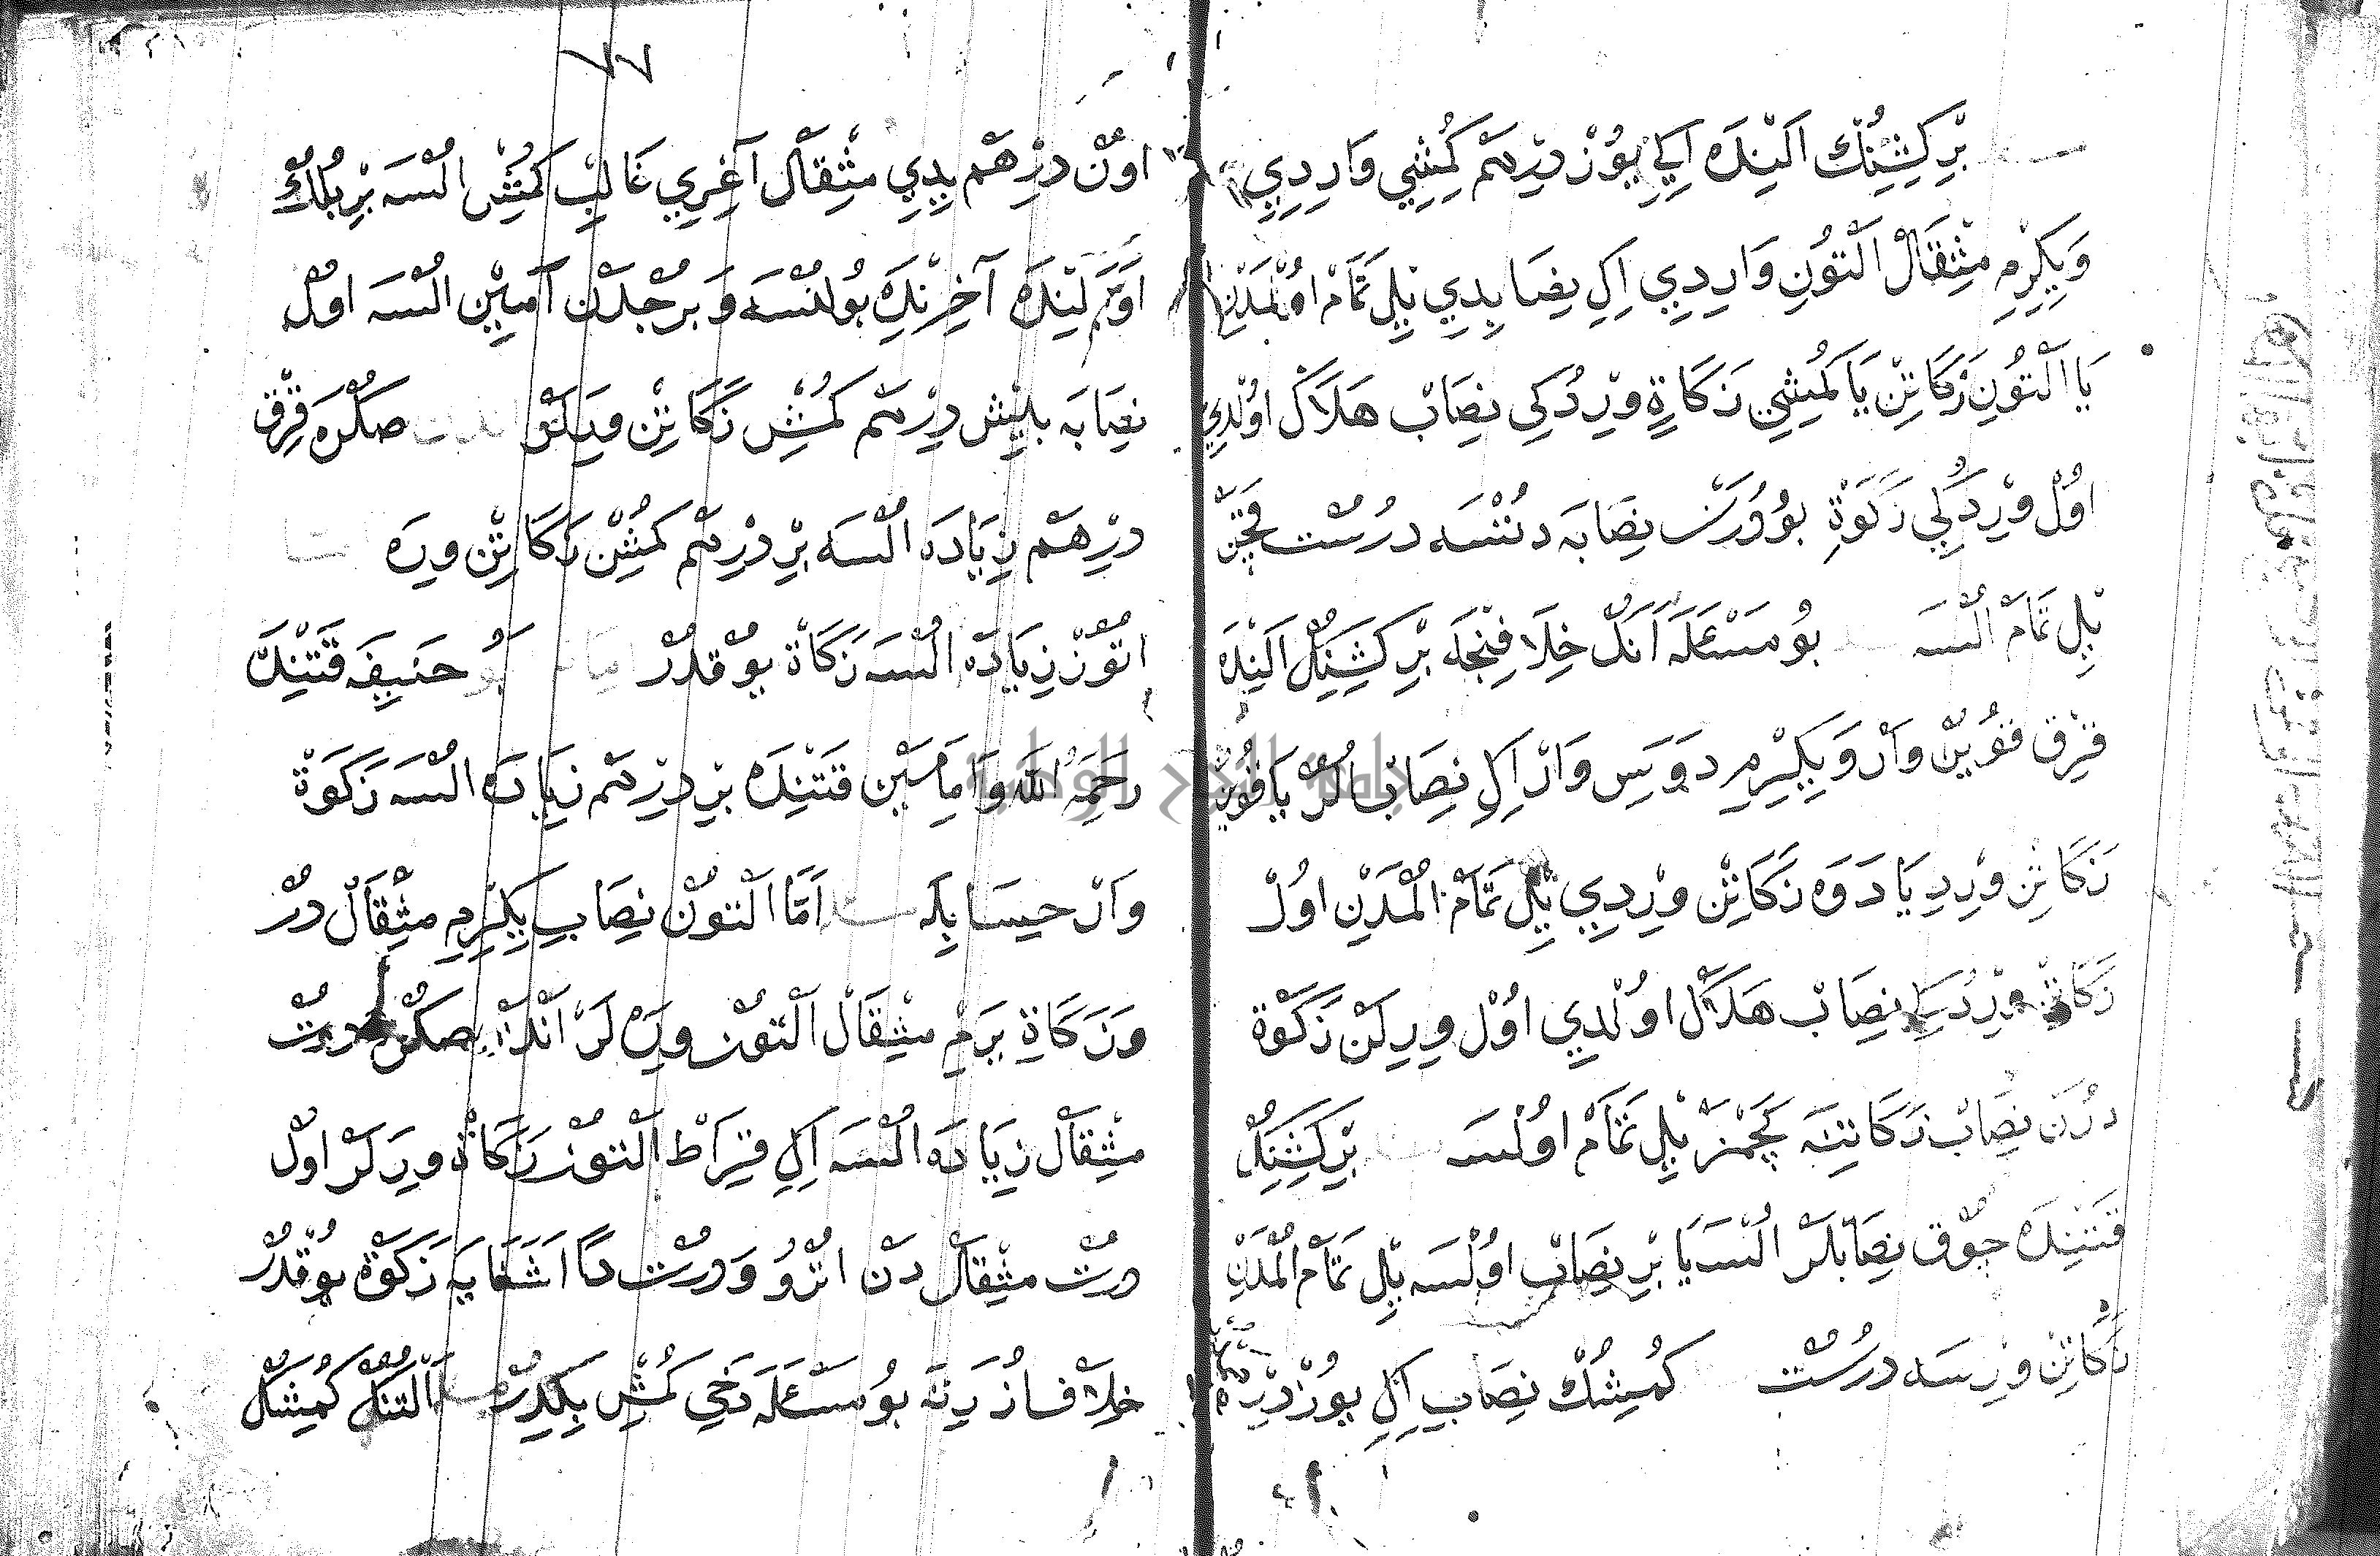 بْرِ كِشِنُكْ اَلِنْدَه اِكِي يُوزْ دِرْهَمْ كُمُشِي وَارِدِي
وَيِكِرْمِ مِثْقَالْ اَلْتُونِ وَارِدِي اِكِ نِصَابِدِي يِلِ تَمَامْ اوُلْمَدَنْ
يَا اَلْتُونِ زَكَاتِنْ يَا كُمُشِي زَكَاةِ وِرْدُكِي نِصَابْ هَلَاكْ اوُلْدِي
اوُلْ وِرْدُكِي زَكَوةِ بُو دُورَنْ نِصَابَه دُتْسَه دُرُسْتْ قَچَنْ
يِلِ تَمَامْ اُلْسَه بُو مَسْئَلَه اَنُكْ خِلَافِنْجَه بْرِ كِشِنِكْ اَلِنْدَه
قِرْق قُويِنْ وَارْ وَيِكِرْمِ دَوَسِ وَارْ اِكِ نِصَابْ اُلُرْ يَا قُويُنْ
زَكَاتِنْ وِرْدِ يَا دَوَه زَكَاتِنْ وِرْدِي يِلِ تَمَامْ اُلْمَدَنْ اوُلْ
زَكَاتِنْ وِرْدُكِ نِصَابْ هَلَاكْ اوُلْدِي اوُلْ وِرِلَنْ زَكَوة
دُرَنْ نِصَابْ زَكَاتِنَه كَچْمَزْ يِلِ تَمَامْ اوُلْسَه بْرِ كِشِنِكْ
قَتِنْدَه چُوقْ نِصَابْلَرْ اُلْسَه يَا بْرِ نِصَابْ اوُلْسَه يِلِ تَمَامْ اُلْمَدَنْ
زَكَاتِنْ وِرْسَه دُرُسْتْ كُمِشُكْ نِصَابِ اِكِ يُوزْ دِرْهَم
٧٧
اوُنْ دِرْهَم يِدِي مِثْقَالْ آغِرِي غَالِبْ كُمُشْ اُلْسَه بْرِ يِلُكْ
اَوَّلِنْدَه آخِرِنْدَه بُولُنْسَه وَبُرْجْدَنْ اَمِينْ اُلْسَه اوُلْ
نِصَابَه بِشْ دِرْهَمْ كُمُشْ زَكَاتِنْ وِيرَلَرْ صُكْرَه قِرْق
دِرْهَمْ زِيَادَه اُلْسَه بْرِ دِرْهَمْ كُمُشْ زَكَاتِنْ وِرَه
اُتُوزْ زِيَادَه اُلْسَه زَكَاةْ يُوقْدُرْ اَبُو حَنِيفَه قَتِنْدَه
رَحِمَهُ اللّٰه وَاِمَامَيْن قَتِنْدَه بْرِ دِرْهَمْ زِيَادَه اُلْسَه زَكَوةْ
وَارْ حِسَابِلَه اَمَّا اَلْتُونْ نِصَابِ يِكِرْمِ مِثْقَالْ دُرْ
وَزَكَاةِ يَرَمْ مِثْقَالْ اَلْتُونْ وِرَه لَرْ اَنْدَنْ صُكْرَه دُرْتْ
مِثْقَالْ زِيَادَه اُلْسَه اِكِ قِرَاطْ اَلْتُونْ زَكَاةْ وِرَلَرْ اوُلْ
دُرْتْ مِثْقَالْ دَنْ اُتُرُو وَدُرْتْ دَنْ اَشَغَايَه زَكَوةْ يُوقْدُرْ
خِلَافْ اُزَرِنَه بُو مَسْئَلَه دَخِي كُمُشْ بِكِدُرْ اَلْتُنُكْ كُمُشُكْ